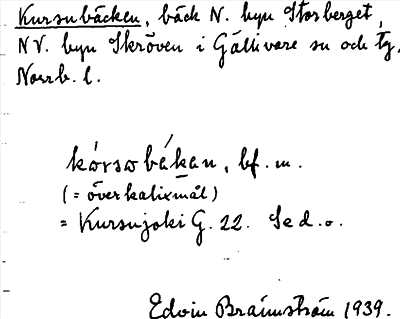 Kursubäcken, bäck N. byn Storberget,
NV. byn Skröven i Gällivare sn och tg,
Norrb. l.
kórsobákan, bf. m.
(= överkalixmål)
= Kursujoki G. 22. Se d. o.
Edvin Brännström 1939.